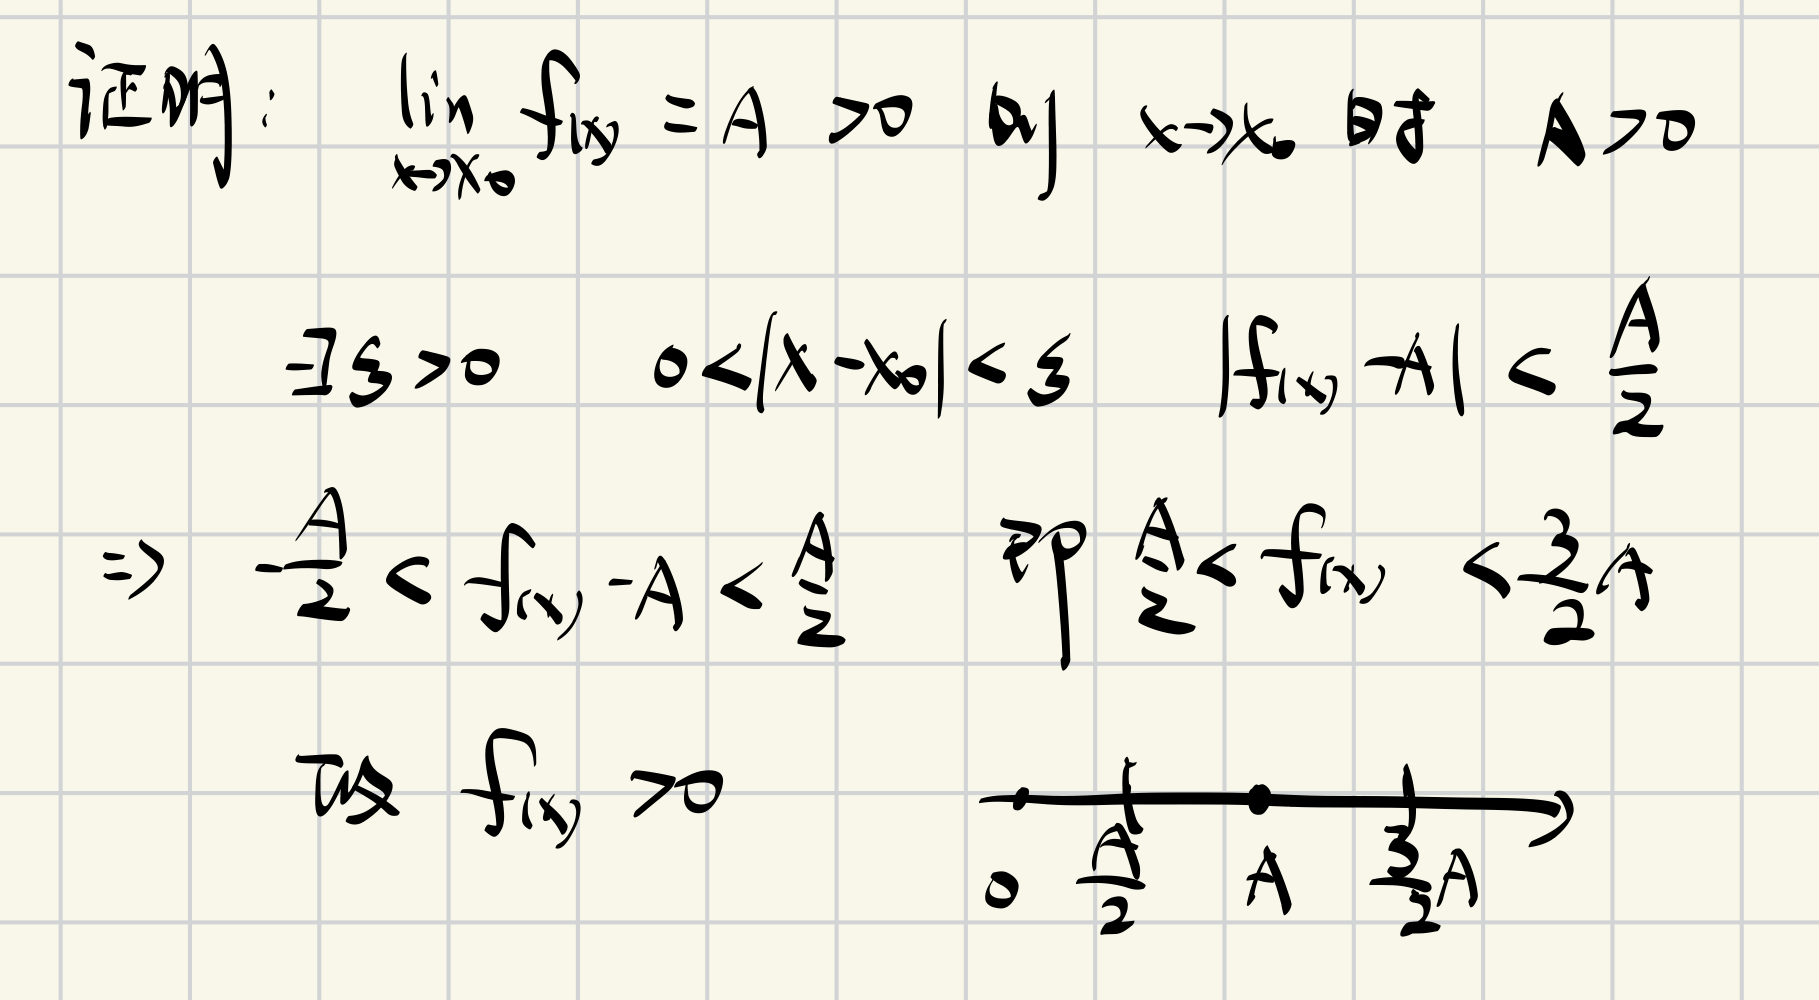 证明: lim f(x) = A > 0 则 x→x₀ 时 A > 0
x→x₀
∃ξ > 0 0 < |x - x₀| < ξ |f(x) - A| < A/2
⇒ -A/2 < f(x) - A < A/2 即 A/2 < f(x) < 3/2 A
故 f(x) > 0
0 A/2 A 3/2 A